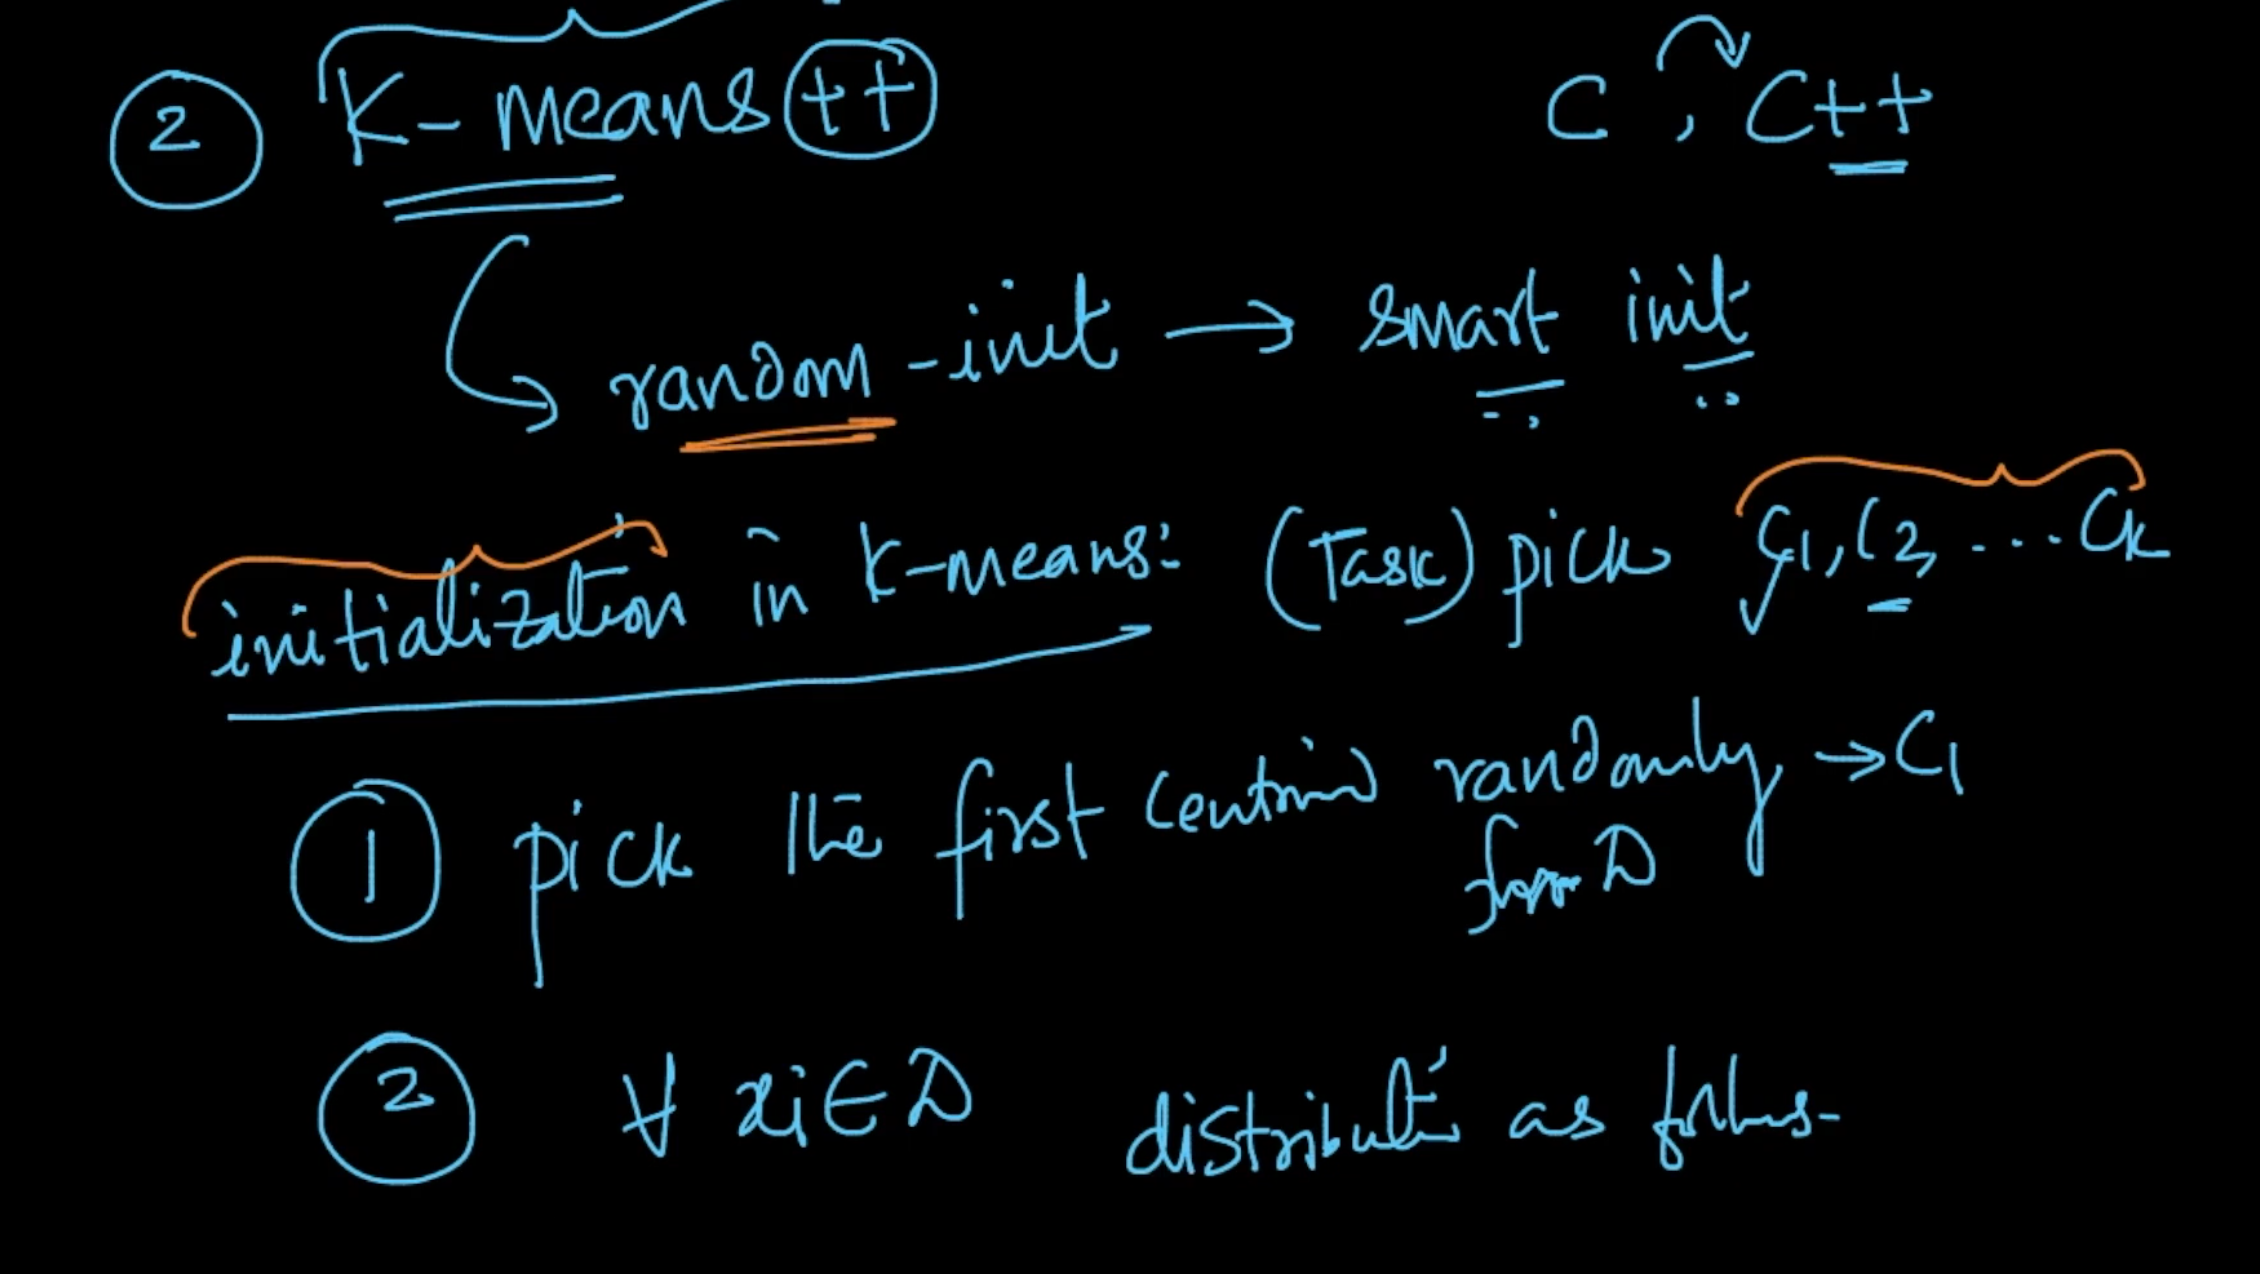 2 K-means++ C, C++
random-init → smart init
initialization in K-means: (Task) pick C1, C2, ... Ck
1 pick the first centroid randomly → C1
from D
2 ∀ xi ∈ D distribution as follows-